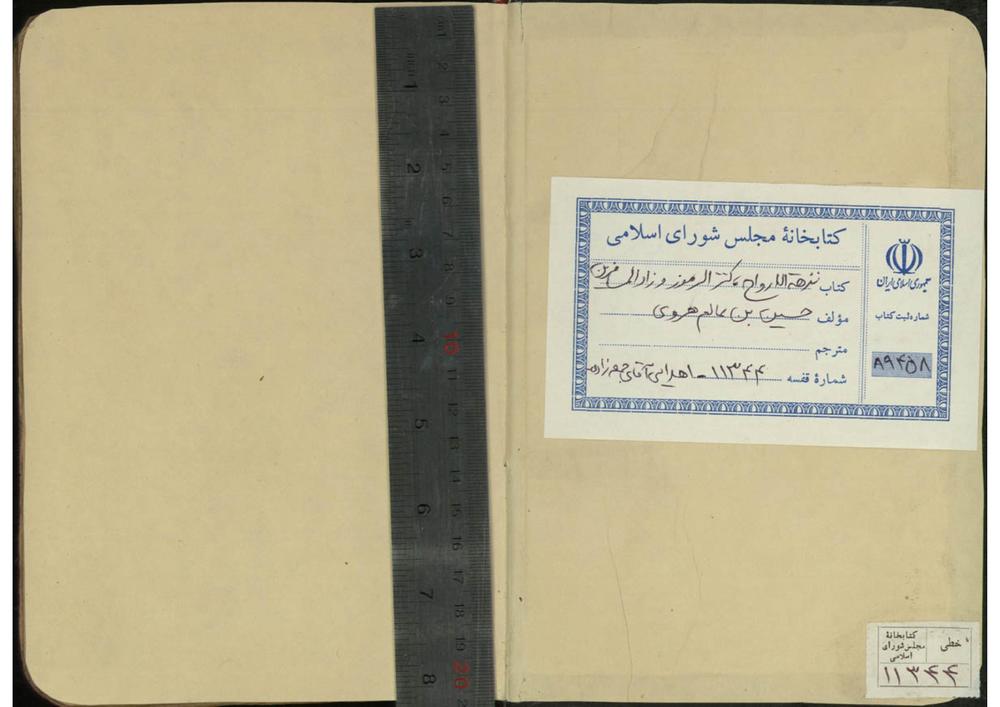 کتابخانهٔ مجلس شورای اسلامی
کتاب نزهة الارواح، کنز الرموز و زاد المسافرین
مؤلف حسین بن عالم هروی
مترجم
شمارهٔ قفسه ۱۱۳۴۴ - اهدایی آقای
جمهوری اسلامی ایران
شماره ثبت کتاب
۸۹۴۵۸
خطی
کتابخانهٔ
مجلس شورای
اسلامی
۱۱۳۴۴
1
2
3
4
5
6
7
8
2
3
4
5
6
7
8
9
10
11
12
13
14
15
16
17
18
19
20